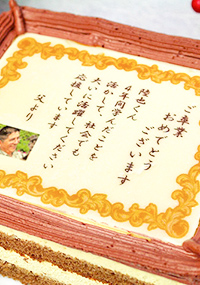 ご卒業
おめでとう
ございます
陸也くん
4年間学んだことを
活かして 社会でも
大いに活躍してください
応援しています
父より